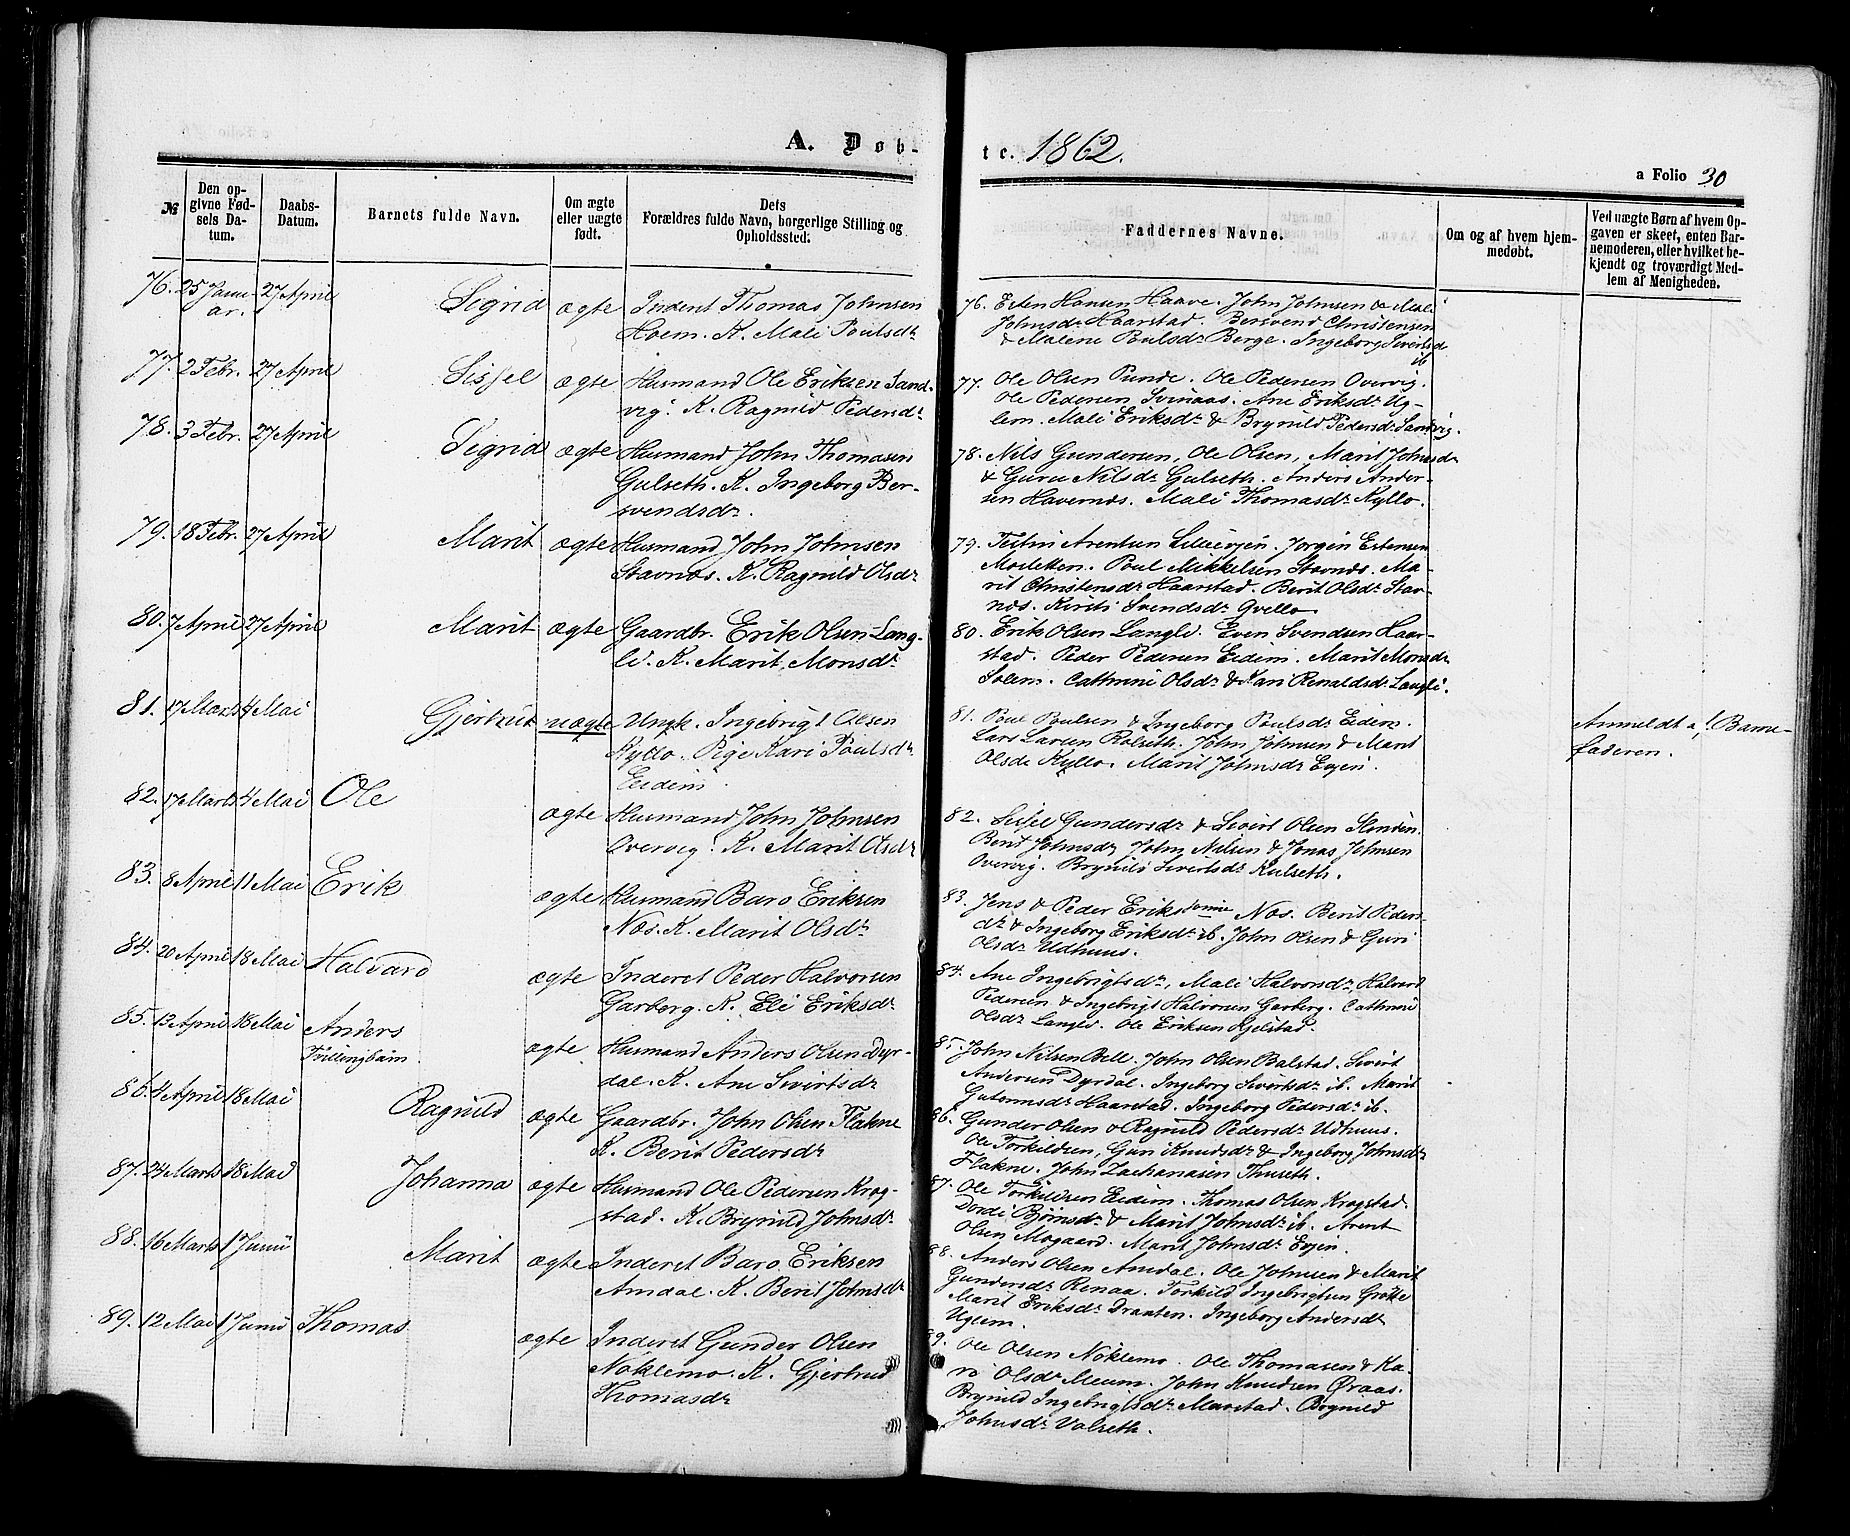 A. Døb-
te. 1862.
a Folio 30
№
Den op-
givne Fød-
sels Da-
tum.
Daabs-
Datum.
Barnets fulde Navn.
Om ægte
eller uægte
født.
Dets
Forældres fulde Navn, borgerlige Stilling og
Opholdssted.
Faddernes Navne.
Om og af hvem hjem-
medøbt.
Ved uægte Børn af hvem Op-
gaven er skeet, enten Bar-
nemoderen, eller hvilket be-
kjendt og troværdigt Med-
lem af Menigheden.
76. 25 Janu- 27 April Sigrid ægte Inderst Thomas Johnsen
ar. Hoem. K. Mali Poulsdr
77. 2 Febr. 27 April Sissel ægte Husmand Ole Eriksen Sand-
vig. K. Ragnild Pedersdr
78. 3 Febr. 27 April Sigrid ægte Husmand John Thomasen
Gulseth. K. Ingeborg Ber-
svendsdr.
79. 18 Febr. 27 April Marit ægte Husmand John Johnsen
Stavnæs. K. Ragnild Olsdr
80. 7 April 27 April Marit ægte Gaardbr. Erik Olsen Lang-
li. K. Marit Monsdr
81. 17 Marts 4 Mai Gjertrud uægte Ungk. Ingebrigt Olsen
Kyllo. Pige Kari Poulsdr
Eidem.
82. 17 Marts 4 Mai Ole ægte Husmand John Johnsen
Overvig. K. Marit Olsdr
83. 8 April 11 Mai Erik ægte Husmand Baro Eriksen
Næs. K. Marit Olsdr
84. 20 April 18 Mai Halvard ægte Inderst Peder Halvorsen
Garberg. K. Eli Eriksdr
85. 13 April 18 Mai Anders ægte Husmand Anders Olsen Dyr-
Tvillingbarn dal. K. Ane Sivertsdr
86. 4 April 18 Mai Ragnild ægte Gaardbr. John Olsen Flakne
K. Berit Pedersdr
87. 24 Marts 18 Mai Johanna ægte Husmand Ole Pedersen Krog-
stad. K. Brynild Johnsdr
88. 16 Marts 1 Juni Marit ægte Inderst Baro Eriksen
Amdal. K. Berit Johnsdr
89. 12 Mai 1 Juni Thomas ægte Inderst Gunder Olsen
Nøklemo. K. Gjertrud
Thomasdr
76. Esten Hansen Haave. John Johnsen & Mali
Johnsdr Haarstad. Bersvend Christensen
& Malene Poulsdr Berge. Ingeborg Sivertsdr
ib.
77. Ole Olsen Punde. Ole Pedersen Overvig.
Ole Pedersen Svinaas. Ane Eriksdr Ug-
lem. Mali Eriksdr & Brynild Pedersdr Sandvig.
78. Nils Gundersen, Ole Olsen, Marit Johnsdr
& Guru Nilsdr Gulseth. Anders Ander-
sen Havernæs. Mali Thomasdr Kyllo.
79. Arentsen Jørgen Estensen
Mosletten. Poul Mikkelsen Stavnæs. Ma-
rit Christensdr Haarstad. Berit Olsdr Stav-
næs. Kirsti Svendsdr Qvello.
80. Erik Olsen Langli. Even Svendsen Haar-
stad. Peder Pedersen Eidem. Marit Monsdr
Solem. Cathrine Olsdr & Kari Renaldsdr Langli.
81. Poul Poulsen & Ingeborg Poulsdr Eidem.
Lars Larsen Rolseth. John Johnsen & Marit
Olsdr Kyllo. Marit Johnsdr Evjen.
Anmeldt a Barne-
faderen.
82. Sissel Gundersdr & Sivert Olsen Slinden.
Berit Johnsdr, John Nilsen & Jonas Johnsen
Overvig. Brynild Sivertsdr Kulseth.
83. Jens & Peder Erikssønner Næs. Berit Peders-
dr & Ingeborg Eriksdr ib. John Olsen & Guri
Olsdr Udhuus.
84. Ane Ingebrigtsdr, Mali Halvorsdr, Halvard
Pedersen & Ingebrigt Halvorsen Garberg. Cathrine
Olsdr Langli. Ole Eriksen Kjelstad.
85. John Nilsen Bell. John Olsen Balstad. Sivert
Andersen Dyrdal. Ingeborg Sivertsdr ib. Marit
Gutormsdr Haarstad. Ingeborg Pedersdr ib.
86. Gunder Olsen & Ragnild Pedersdr Udhuus.
Ole Torkildsen, Guri Knudsdr & Ingeborg Johnsdr
Flakne. John Zachariasen Thuseth.
87. Ole Torkildsen Eidem. Thomas Olsen Krogstad.
Dordi Bjørnsdr & Marit Johnsdr ib. Arent
Olsen Mogaard. Marit Johnsdr Evjen.
88. Anders Olsen Amdal. Ole Johnsen & Marit
Gundersdr Renaa. Torkild Ingebrigtsen Grøtte
Marit Eriksdr Draaten. Ingeborg Andersdr
Uglem.
89. Ole Olsen Nøklemo. Ole Thomasen & Ka-
ri Olsdr Meum. John Knudsen Øraas.
Brynild Ingebrigtsdr Marstad. Brynild
Johnsdr Valseth.